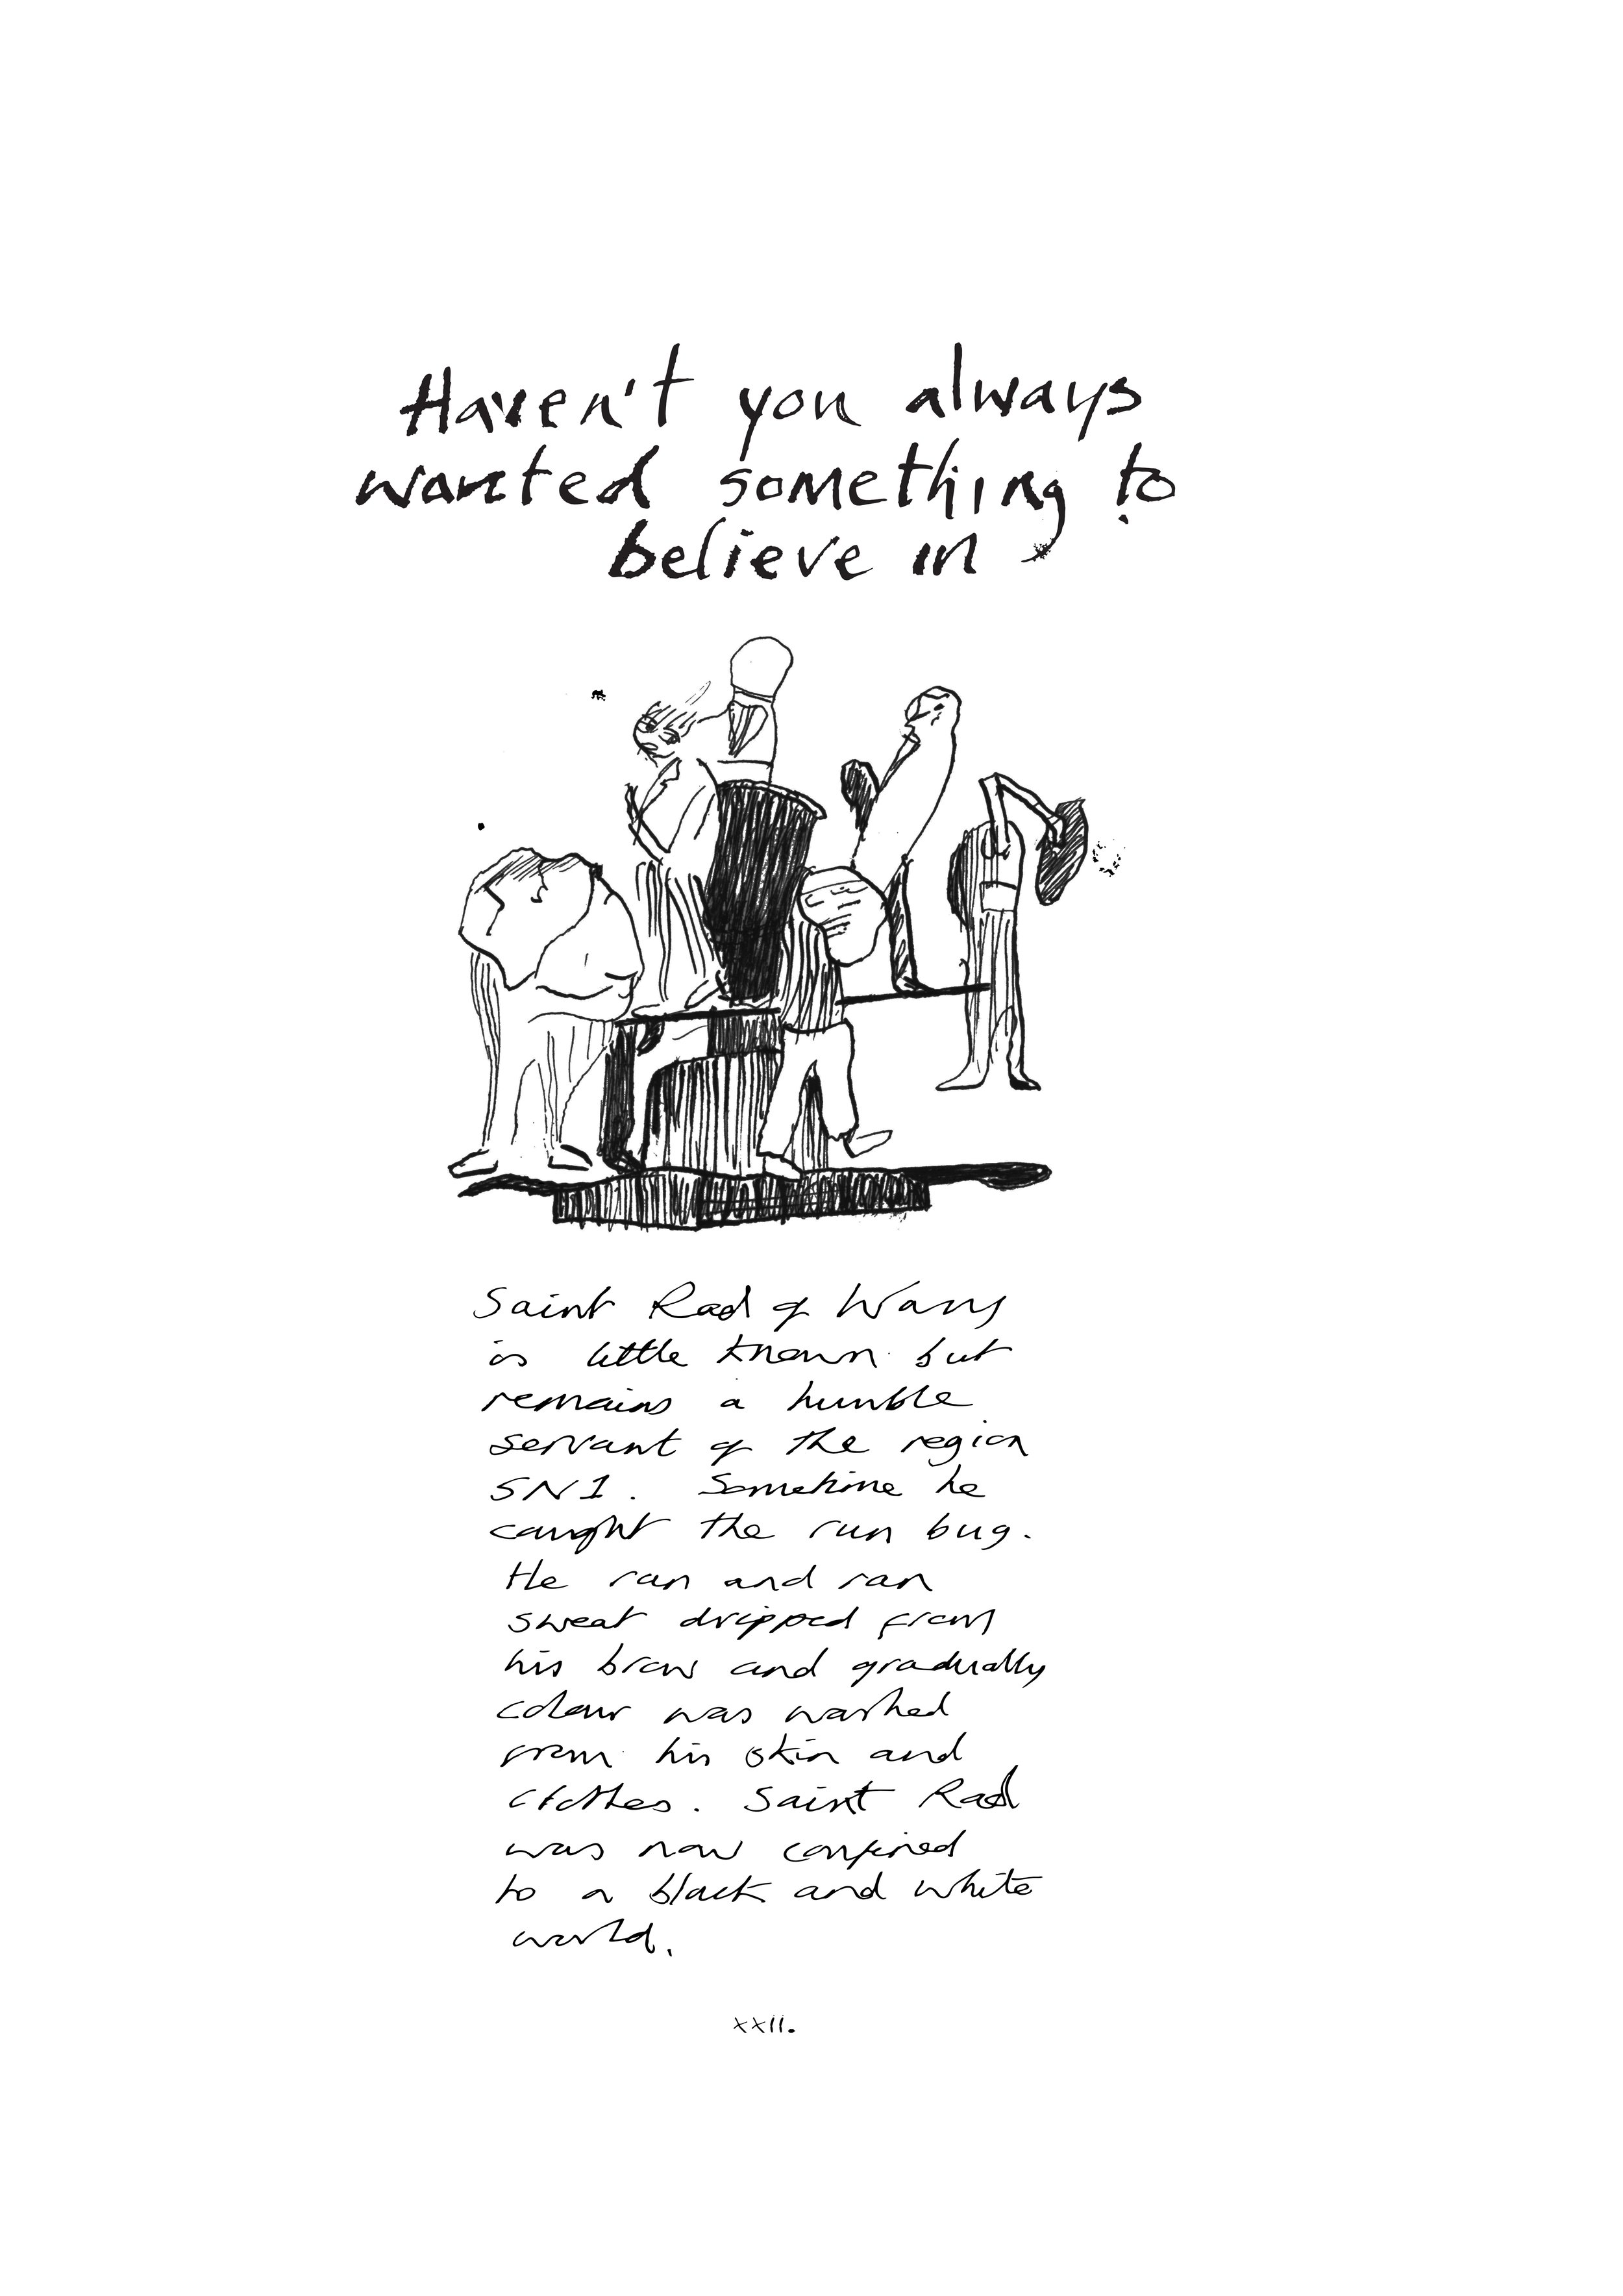 Haven't you always
wanted something to
believe in
Saint Rad of
is little known but
remains a humble
servant of the region
SN1. Sometime he
caught the run bug.
He ran and ran
sweat dripped from
his brow and gradually
colour was washed
from his skin and
clothes. Saint Rad
was now confined
to a black and white
world.
xxii.